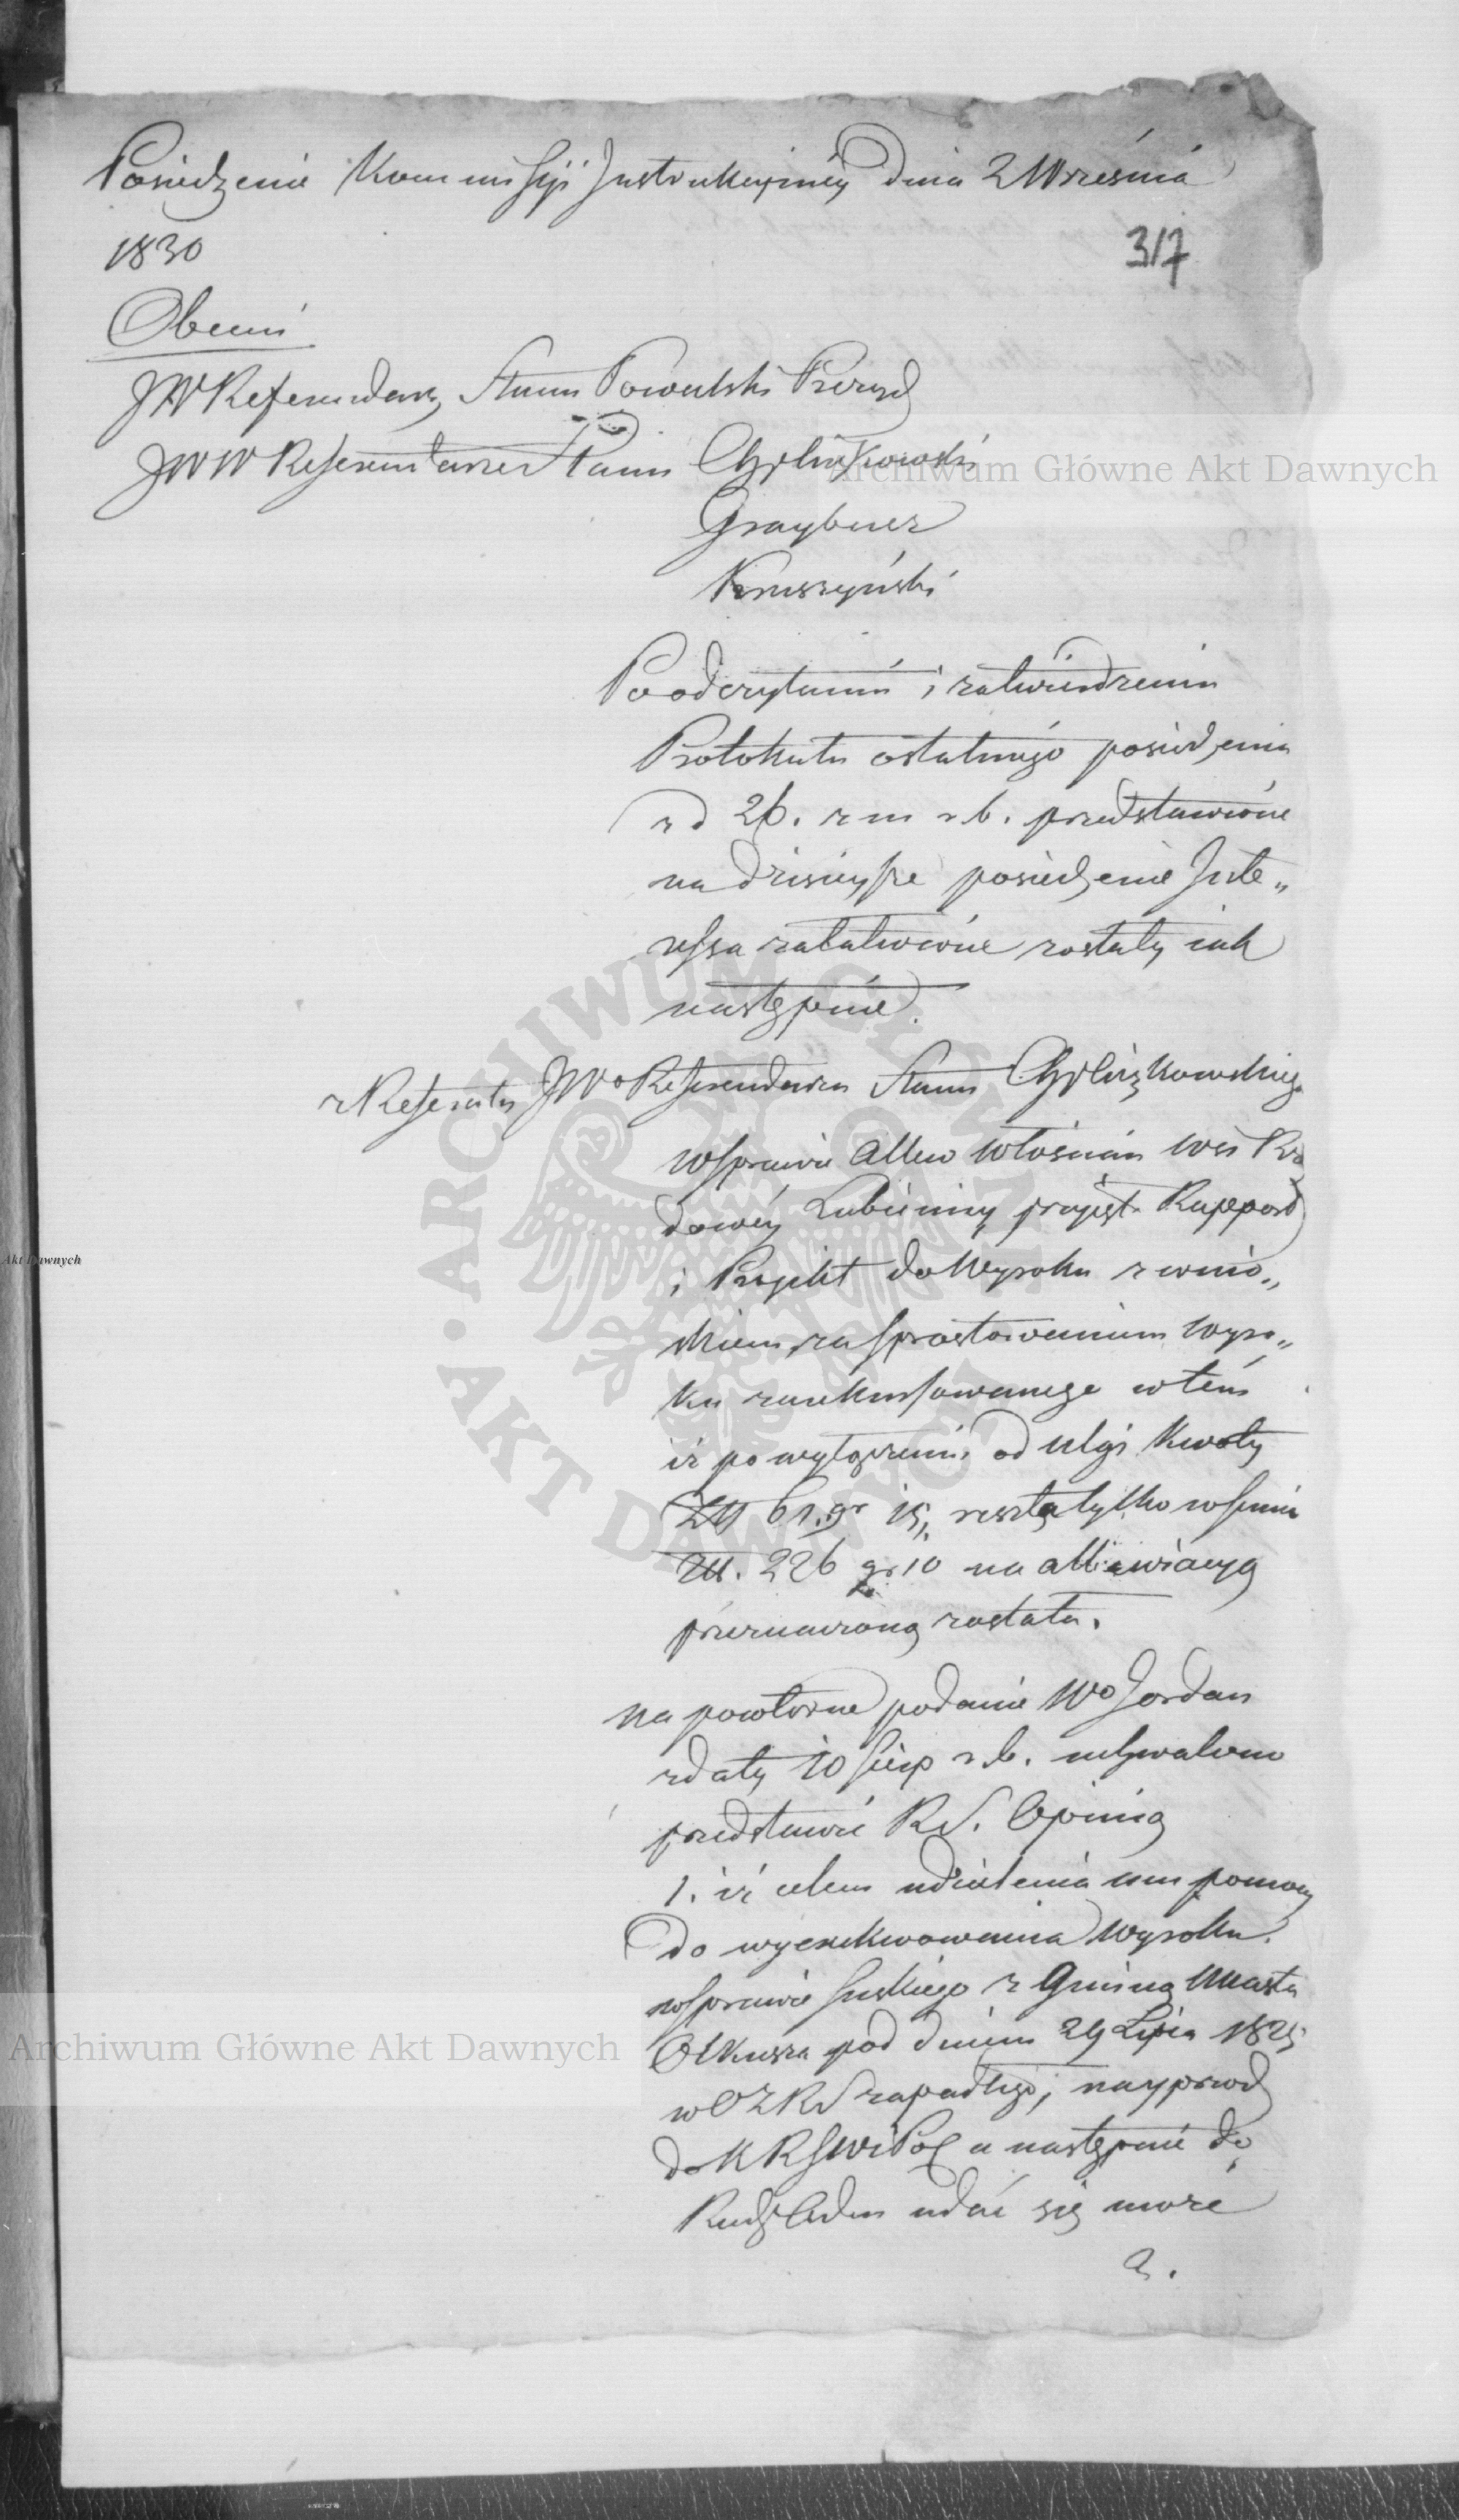 Posiedzenie Kommissyi Instrukcyinéy dnia 2 Września
1830
317
Obecni
JW Referendarz Stanu Prezyd
JWW Referendarze Stanu
Archiwum Główne Akt Dawnych
Graybner
Kruszyński
Po odczytaniu i zatwierdzeniu
Protokułu ostatniego posiedzenia
z d 26. z m r b. przedstawione
na dzisieysze posiedzenie Inte„
ressa załatwione zostały iak
następnie.
z Referatu JWo Referendarza Stanu
w sprawie allew Włościan wsi Rzą
dowéy przyięto Rapport
i Projekt do Wyroku z wnio„
skiem za sprostowaniem wyro„
ku zarekursowanego w tém
iż po wyłączeniu od ulgi kwoty
Złł 61. gr 15, reszta tylko w summie
Złł. 226 gr 10 na alliewiacyą
przeznaczoną została.
na powtórne podanie Wo Jordan
z daty 10 Sierp r b. uchwalono
przedstawić RS. Opinią
1. iż celem udzielenia mu pomocy
do wyexekwowania Wyroku
w sprawie Suskiego z Gminą Miasta
Olkusza pod dniem 29 Lipca 1825
w OZRS zapadłego, nayprzod
do KRSWiPol a następnie do
Rady Adm udać się może
2.
ARCHIWUM GŁÓWNE
AKT DAWNYCH
Akt Dawnych
Archiwum Główne Akt Dawnych